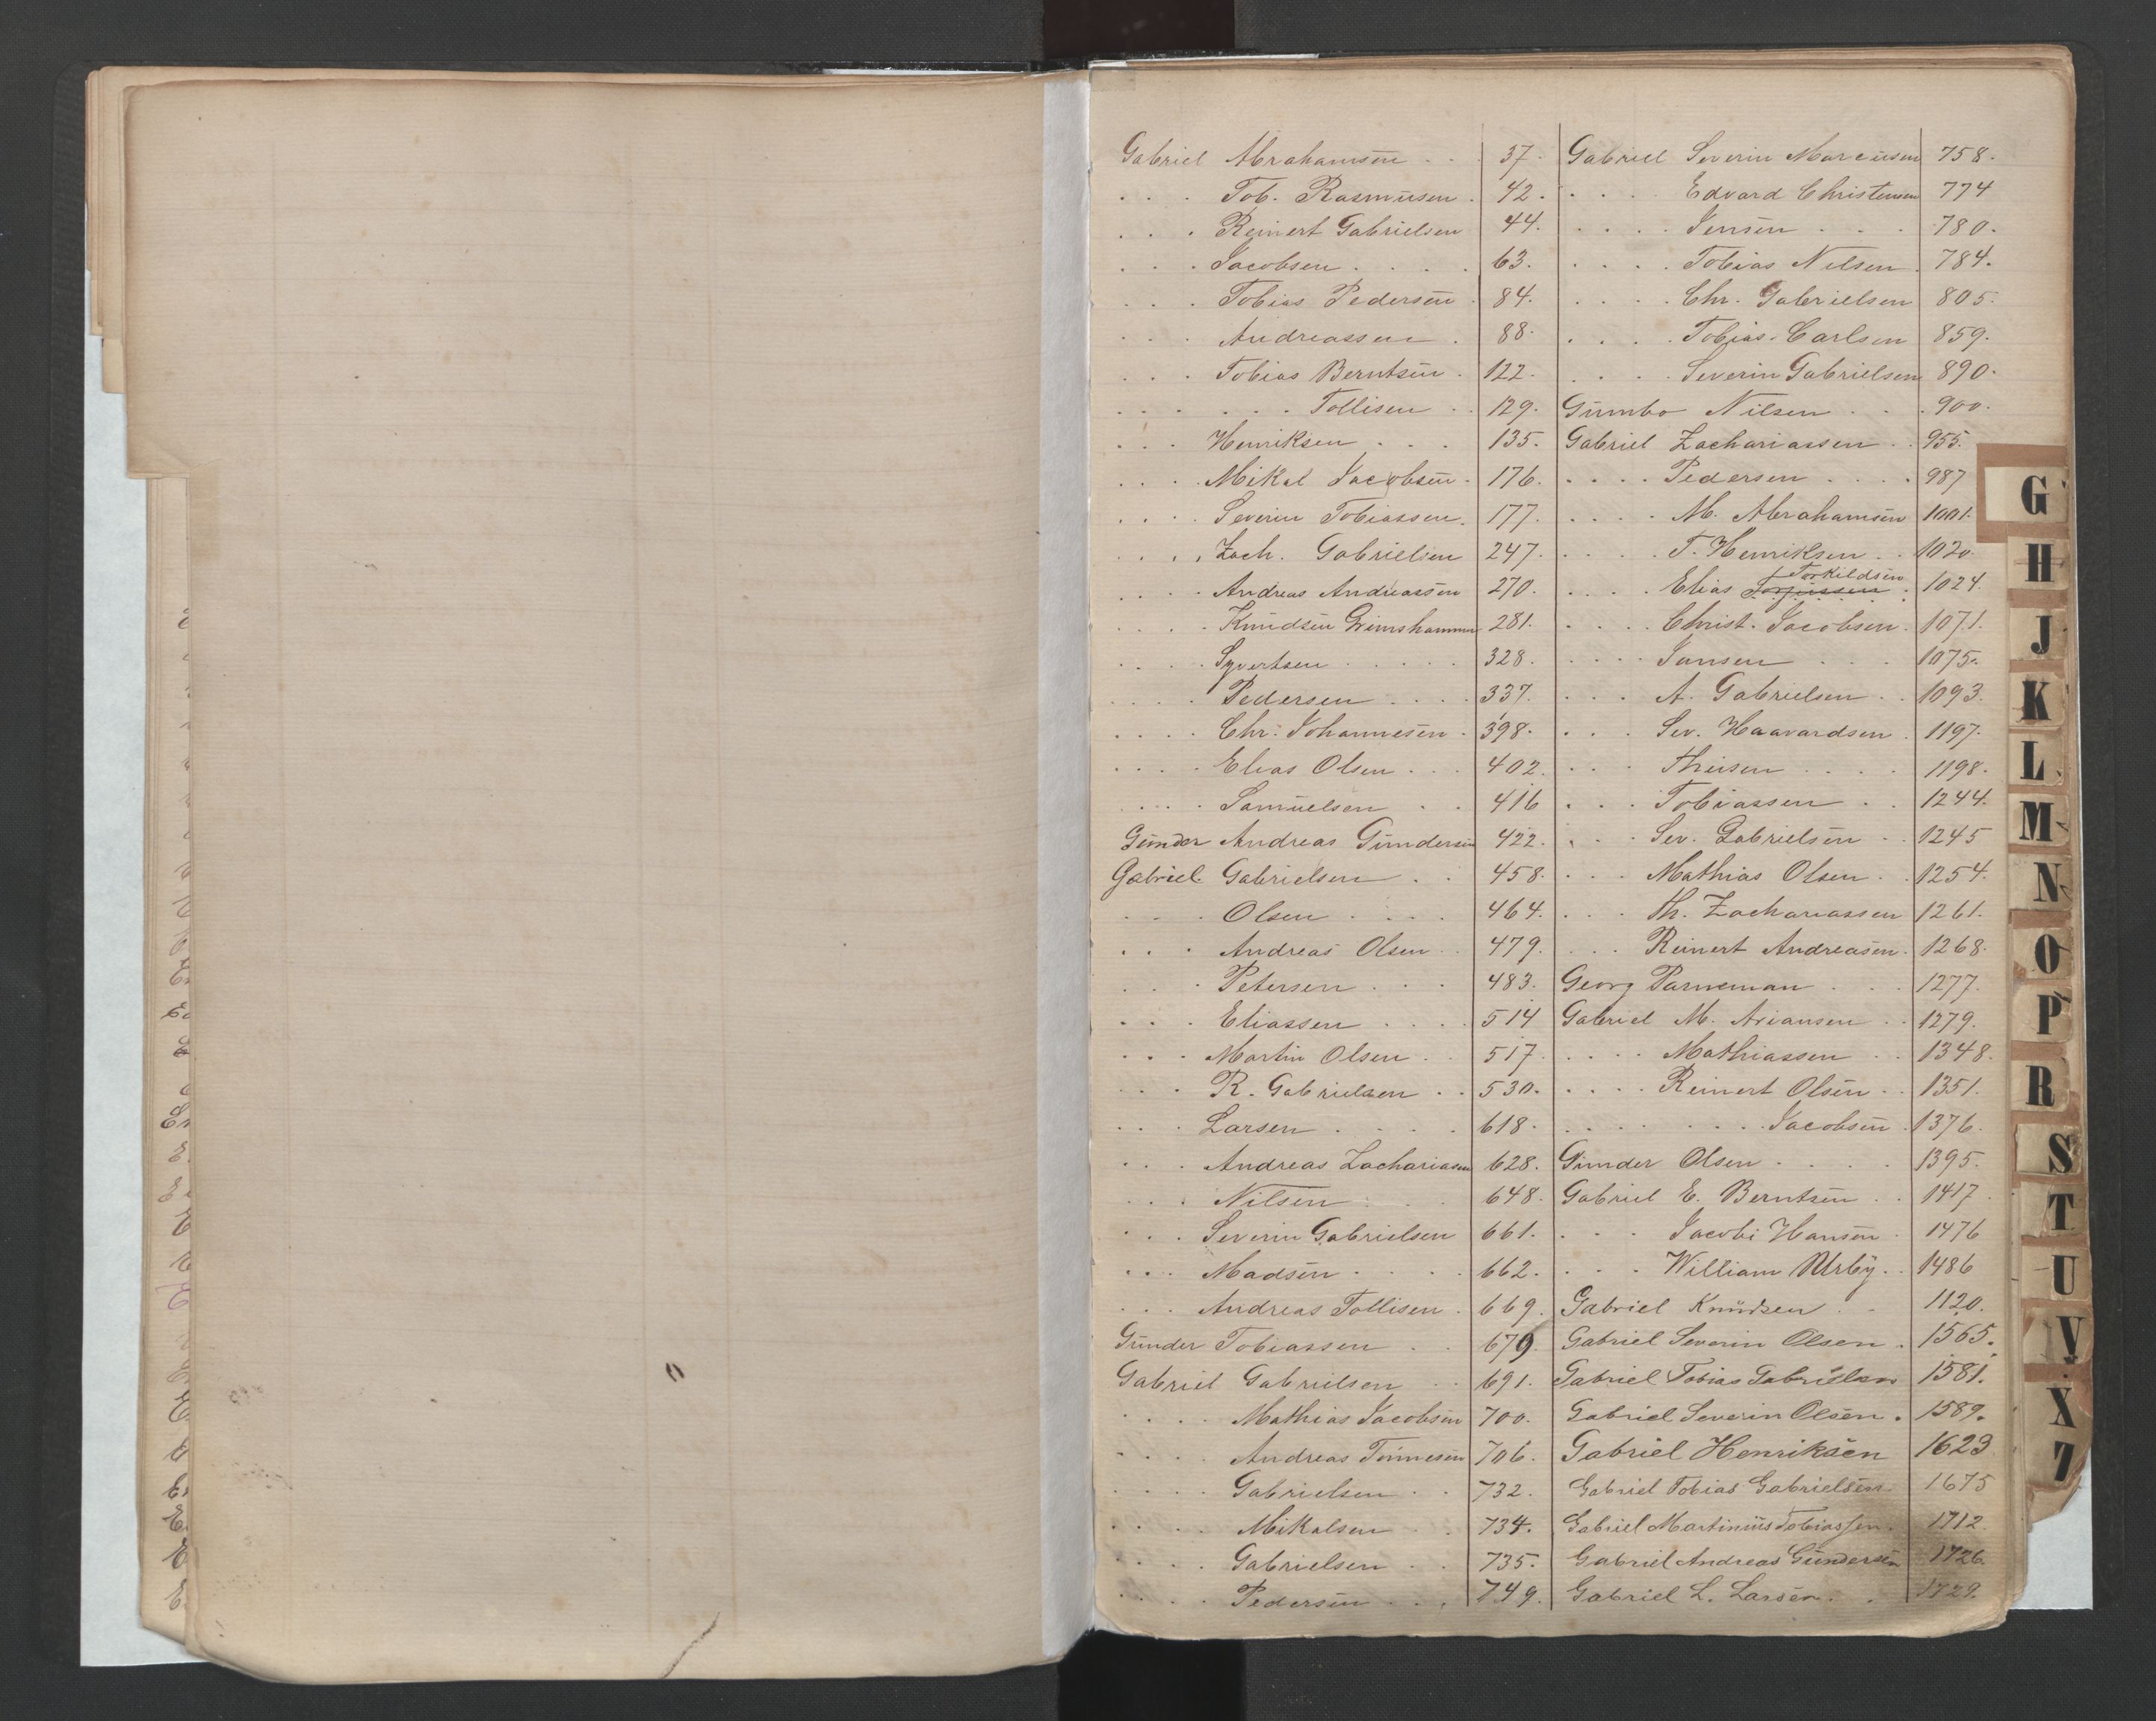 Gabriel Abrahamsen . . 37.
. . . Tob. Rasmusen . 42.
. . . Reinert Gabrielsen 44.
. . . Jacobsen . . . . 63.
. . . Tobias Pedersen . 84.
. . . Andreassen . 88.
. . . Tobias Berntsen . 122.
. . . . . . Tollisen . . 129.
. . . Henriksen . . . 135.
. . . . Mikal Jacobsen . 176.
. . . . Severin Tobiassen . 177.
. . . . Zach. Gabrielsen 247.
. . . . Andreas Andreassen 270.
. . . . Knudsen Grimshammer 281.
. . . . Syvertsen . . . . . 328.
. . . . Pedersen . . . . 337.
. . . . Chr. Johannesen . 398.
. . . . Elias Olsen . . . 402.
. . . . Samuelsen . . 416
Gunder Andreas Gundersen 422.
Gabriel Gabrielsen . . 458.
. . . Olsen . . . . 464.
. . . Andreas Olsen . . 479.
. . . Petersen . . . 483.
. . . Eliassen . . . . 514
. . . Martin Olsen . . 517.
. . . R. Gabrielsen . . 530.
. . . Larsen . . . . 618.
. . . Andreas Zachariasen 628.
. . . Nilsen . . . 648.
. . . Severin Gabrielsen 661.
. . . Madsen . . . . 662.
. . . Andreas Tollisen . 669.
Gunder Tobiassen . . 679.
Gabriel Gabrielsen . . 691.
. . . . Mathias Jacobsen 700.
. . . . Andreas Tönnesen 706.
. . . . Gabrielsen . . 732.
. . . . Mikalsen . . 734.
. . . . Gabrielsen . . 735.
. . . . Pedersen . . . 749.
Gabriel Severin Marcusen 758.
. . . . Edvard Christensen 774
. . . . Jensen . . . 780.
. . . . Tobias Nilsen . 784.
. . . . Chr. Gabrielsen 805.
. . . . Tobias Carlsen 859.
. . . . Severin Gabrielsen 890.
Gumbo Nilsen . . . 900.
Gabriel Zachariassen . . 955.
. . . . Pedersen . . . . 987
. . . . M. Abrahamsen 1001.
. . . . T. Henriksen . . 1020.
. . . . Elias Torjussen Torkildsen . 1024.
. . . . Christ. Jacobsen . 1071.
. . . . Jansen . . . 1075.
. . . A. Gabrielsen . . 1093.
. . . Sev. Haavardsen . 1197.
. . . Theisen . . . . 1198.
. . . Tobiassen . . 1244.
. . . Sev. Gabrielsen . . 1245
. . . Mathias Olsen . . 1254.
. . . Th. Zachariassen 1261.
. . . Reinert Andreasen . 1268.
Georg Parneman . . . 1277.
Gabriel M. Ariansen . . 1279.
. . . . Mathiassen . . 1348.
. . . . Reinert Olsen . . 1351.
. . . . . . . . Jacobsen . 1376.
Gunder Olsen . . . . 1395.
Gabriel E. Berntsen . . 1417.
. . . Jacobi Hansen . 1476
. . . William Urby . . 1486
Gabriel Knudsen . . 1120.
Gabriel Severin Olsen . 1565.
Gabriel Tobias Gabrielsen 1581.
Gabriel Severin Olsen . 1589.
Gabriel Henriksen 1623
Gabriel Tobias Gabrielsen . 1675
Gabriel Martinius Tobiassen . 1712.
Gabriel Andreas Gundersen 1726.
Gabriel L. Larsen . . 1729.
G
H
J
K
L
M
N
O
P
R
S
T
U
V
X
Z